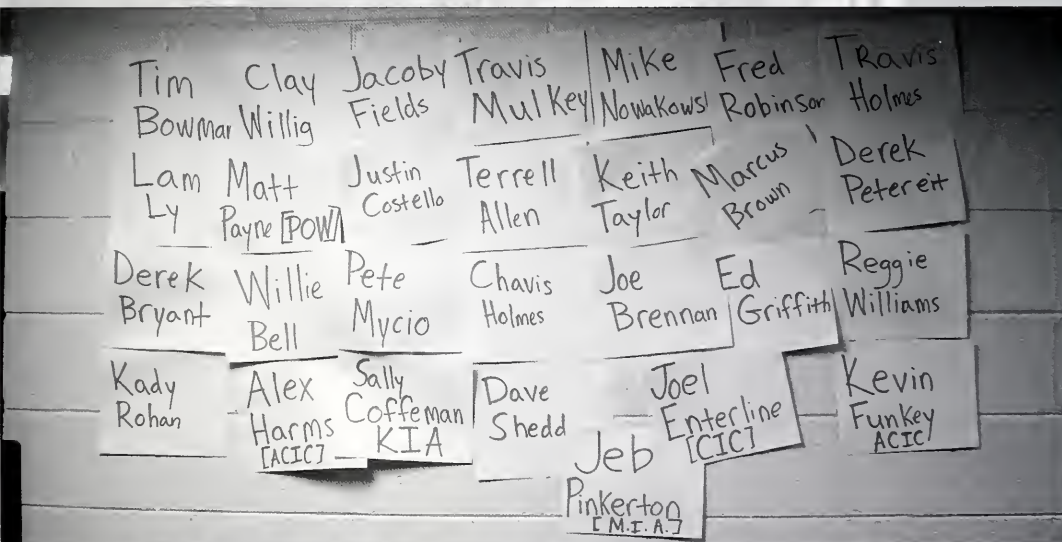 Tim
Bowman
Clay
Willig
Jacoby
Fields
Travis
Mulkey
Mike
Nowakows
Fred
Robinson
TRavis
Holmes
Lam
Ly
Matt
Payne [POW]
Justin
Costello
Terrell
Allen
Keith
Taylor
Marcus
Brown
Derek
Petereit
Derek
Bryant
Willie
Bell
Pete
Mycio
Chavis
Holmes
Joe
Brennan
Ed
Griffith
Reggie
Williams
Kady
Rohan
Alex
Harms
[ACIC]
Sally
Coffeman
KIA
Dave
Shedd
Joel
Enterline
[CIC]
Kevin
Funkey
ACIC
Jeb
Pinkerton
[M.I.A.]